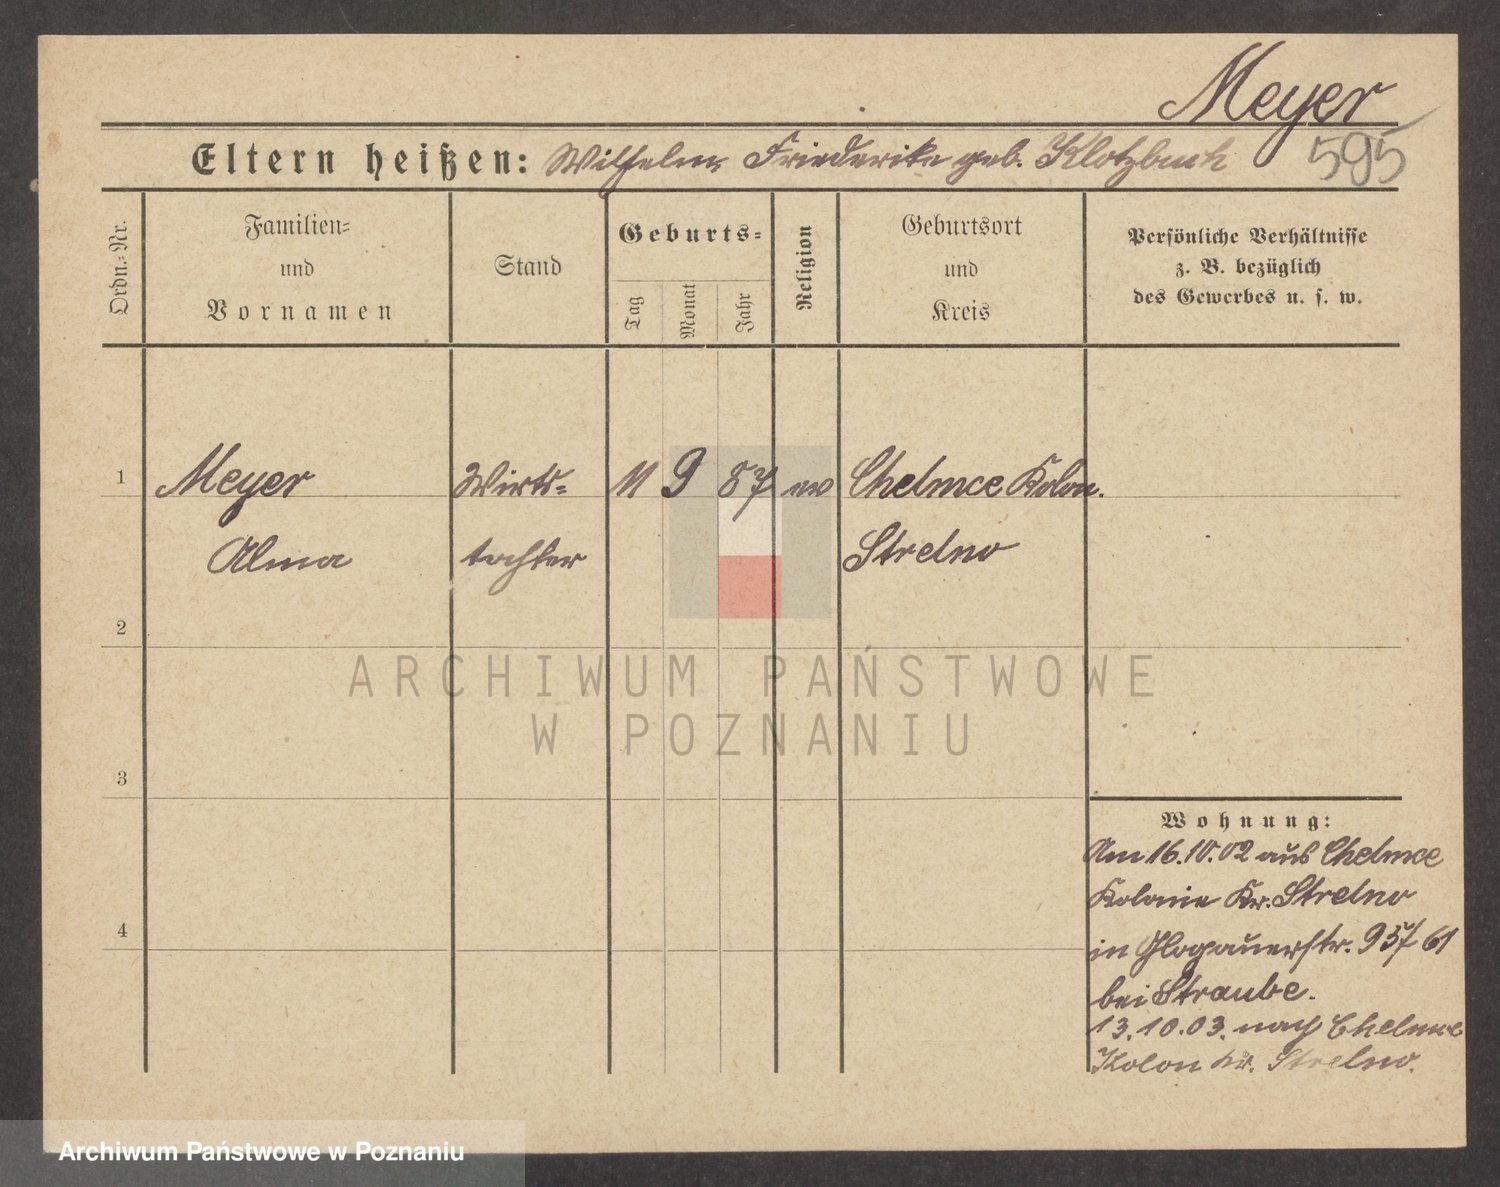 Meyer
595
Eltern heißen: Wilhelm, Friederike geb. Klotzbach
Ordn.-Nr.
Familien-
und
Vornamen
Stand
Geburts-
Tag
Monat
Jahr
Religion
Geburtsort
und
Kreis
Persönliche Verhältnisse
z. B. bezüglich
des Gewerbes u. s. w.
1 Meyer Wirts- 11 9 87 ev Chelmce Kolon.
Alma tochter Strelno
2
ARCHIWUM PAŃSTWOWE
W POZNANIU
3
Wohnung:
Am 16.10.02 aus Chelmce
Kolonie Kr. Strelno
4
in Glogauerstr. 95/61
bei Straube.
13.10.03. nach Chelmce
Kolon Kr. Strelno.
Archiwum Państwowe w Poznaniu